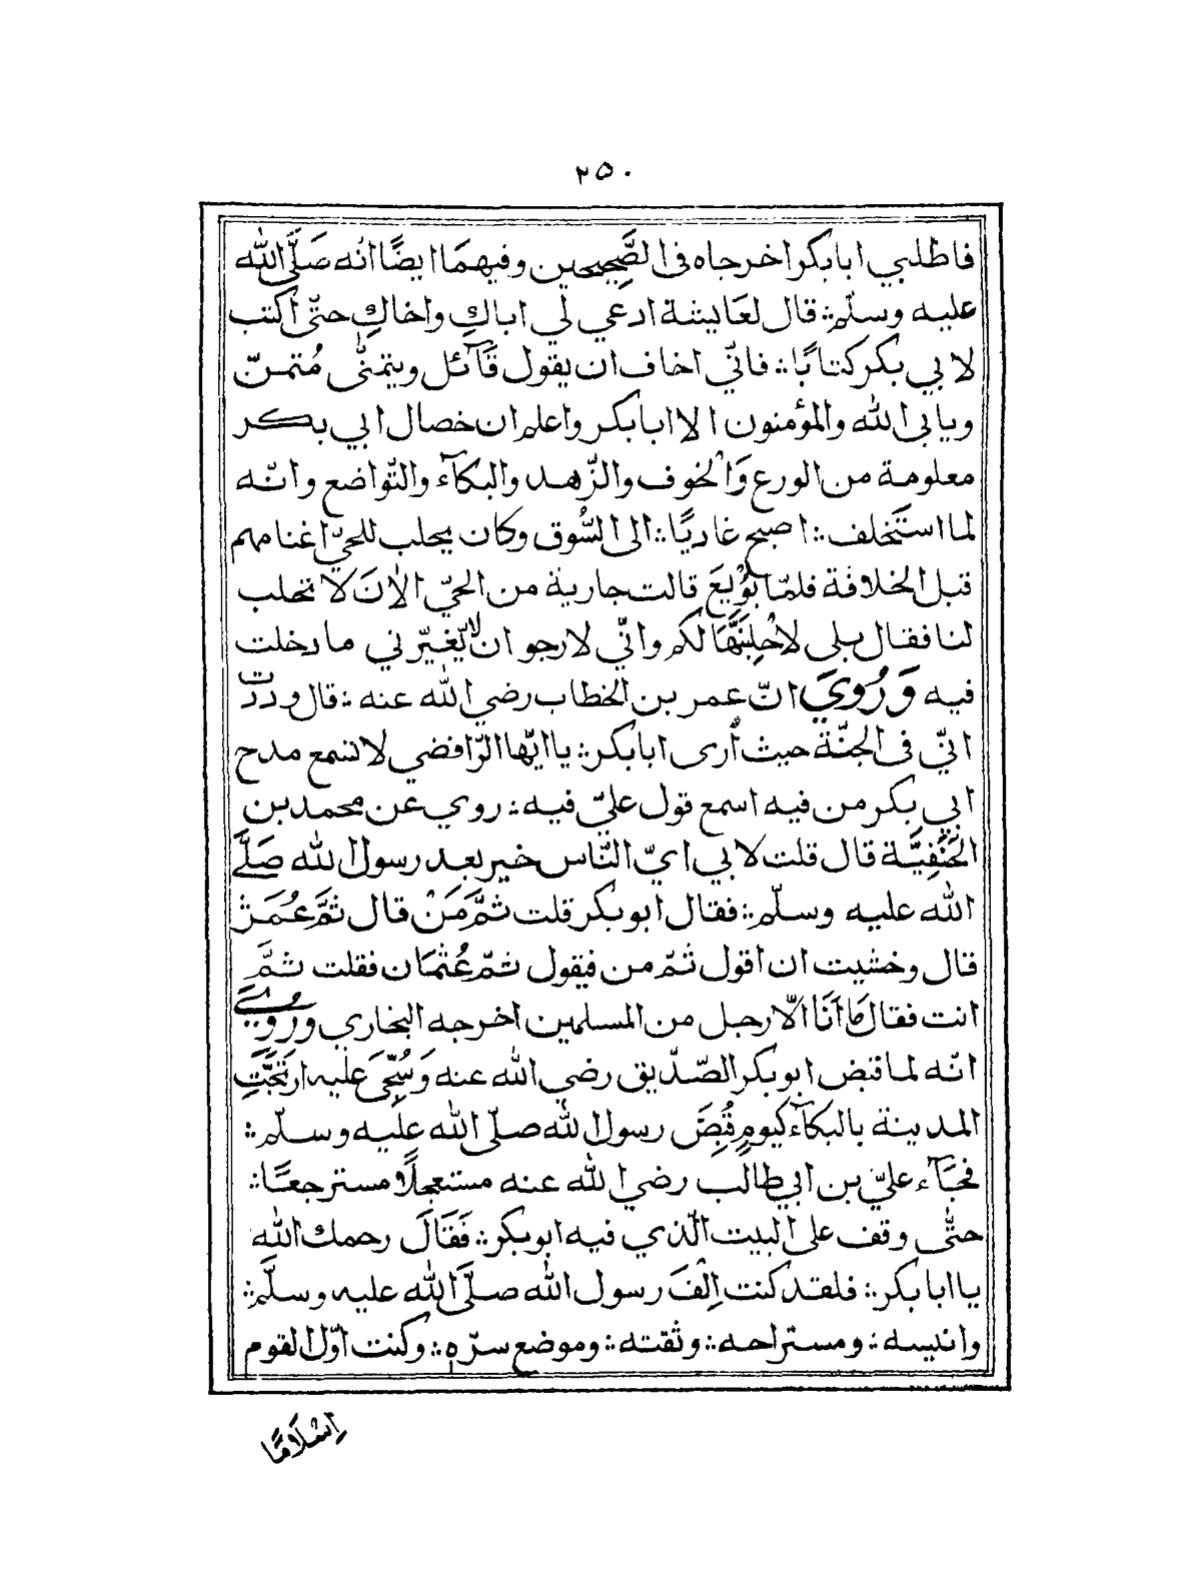 ٢٥٠
فاطلبي ابا بكر اخرجاه فى الصَّحِيحين وفيهمَا ايضًا انه صَلَّى الله
عليه وسلّم ؞ قال لعَايشة ادعي لي اباكِ واخاكِ حتّى اكتب
لابي بكر كتابًا ؞ فانّي اخاف ان يقول قَآئل ويتمنّٰى مُتمنّ
ويابى الله والمؤمنون الا ابا بكر واعلم ان خصال ابي بكر
معلومة من الورع وَالْخوف والزّهد والبكآء والتّواضع وانّه
لما استَخلف ؞ اصبح غاديًا ؞ الى السُّوق وكان يحلب للحيّ اغنامهم
قبل الخلافة فلمّا بُوْيِعَ قالت جارية من الحيّ الاٰنَ لا تحلب
لنا فقال بلى لاَحْلِبَنَّهَا لكم وانّي لارجو ان لا يّغيّرني ما دخلت
فيه وَرُوِيَ انّ عمر بن الخطاب رضي الله عنه ؞ قال وددت
انّي فى الجنّة حيث أرى ابا بكر ؞ يا ايّها الرّافضي لا تسمع مدح
ابي بكر من فيه اسمع قول عليّ فيه ؞ روي عن محمد بن
الحَنَفِيَّة قال قلت لابي ايّ النّاس خير بعد رسول الله صَلَّى
الله عليه وسلّم ؞ فقال ابو بكر قلت ثمَّ مَنْ قال ثمَّ عُمَرْ
قال وخشيت ان اقول ثمّ من فيقول ثمّ عُثمَان فقلت ثمَّ
انت فقال مَا اَنَا الاّ رجل من المسلمين اخرجه البخاري ورُوِيَ
انّه لما قبض ابو بكر الصّدّيق رضي الله عنه وَسُجّىَ عليه ارتَجَّتِ
المدينة بالبكآء كيومِ قُبِضَ رسول الله صلّى الله عليه وسلّم ؞
فجَآء عليّ بن ابي طالب رضي الله عنه مستعجلًا مسترجعًا ؞
حتّٰى وقف على البيت الّذي فيه ابو بكر ؞ فَقَالَ رحمك الله
يا ابا بكر ؞ فلقد كنت اِلْفَ رسول الله صلَّى الله عليه وسلَّم ؞
وانيسه ؞ ومستراحه ؞ وثقته ؞ وموضع سرّه ؞ وكنت اوّل القوم
اِسْلَامًا